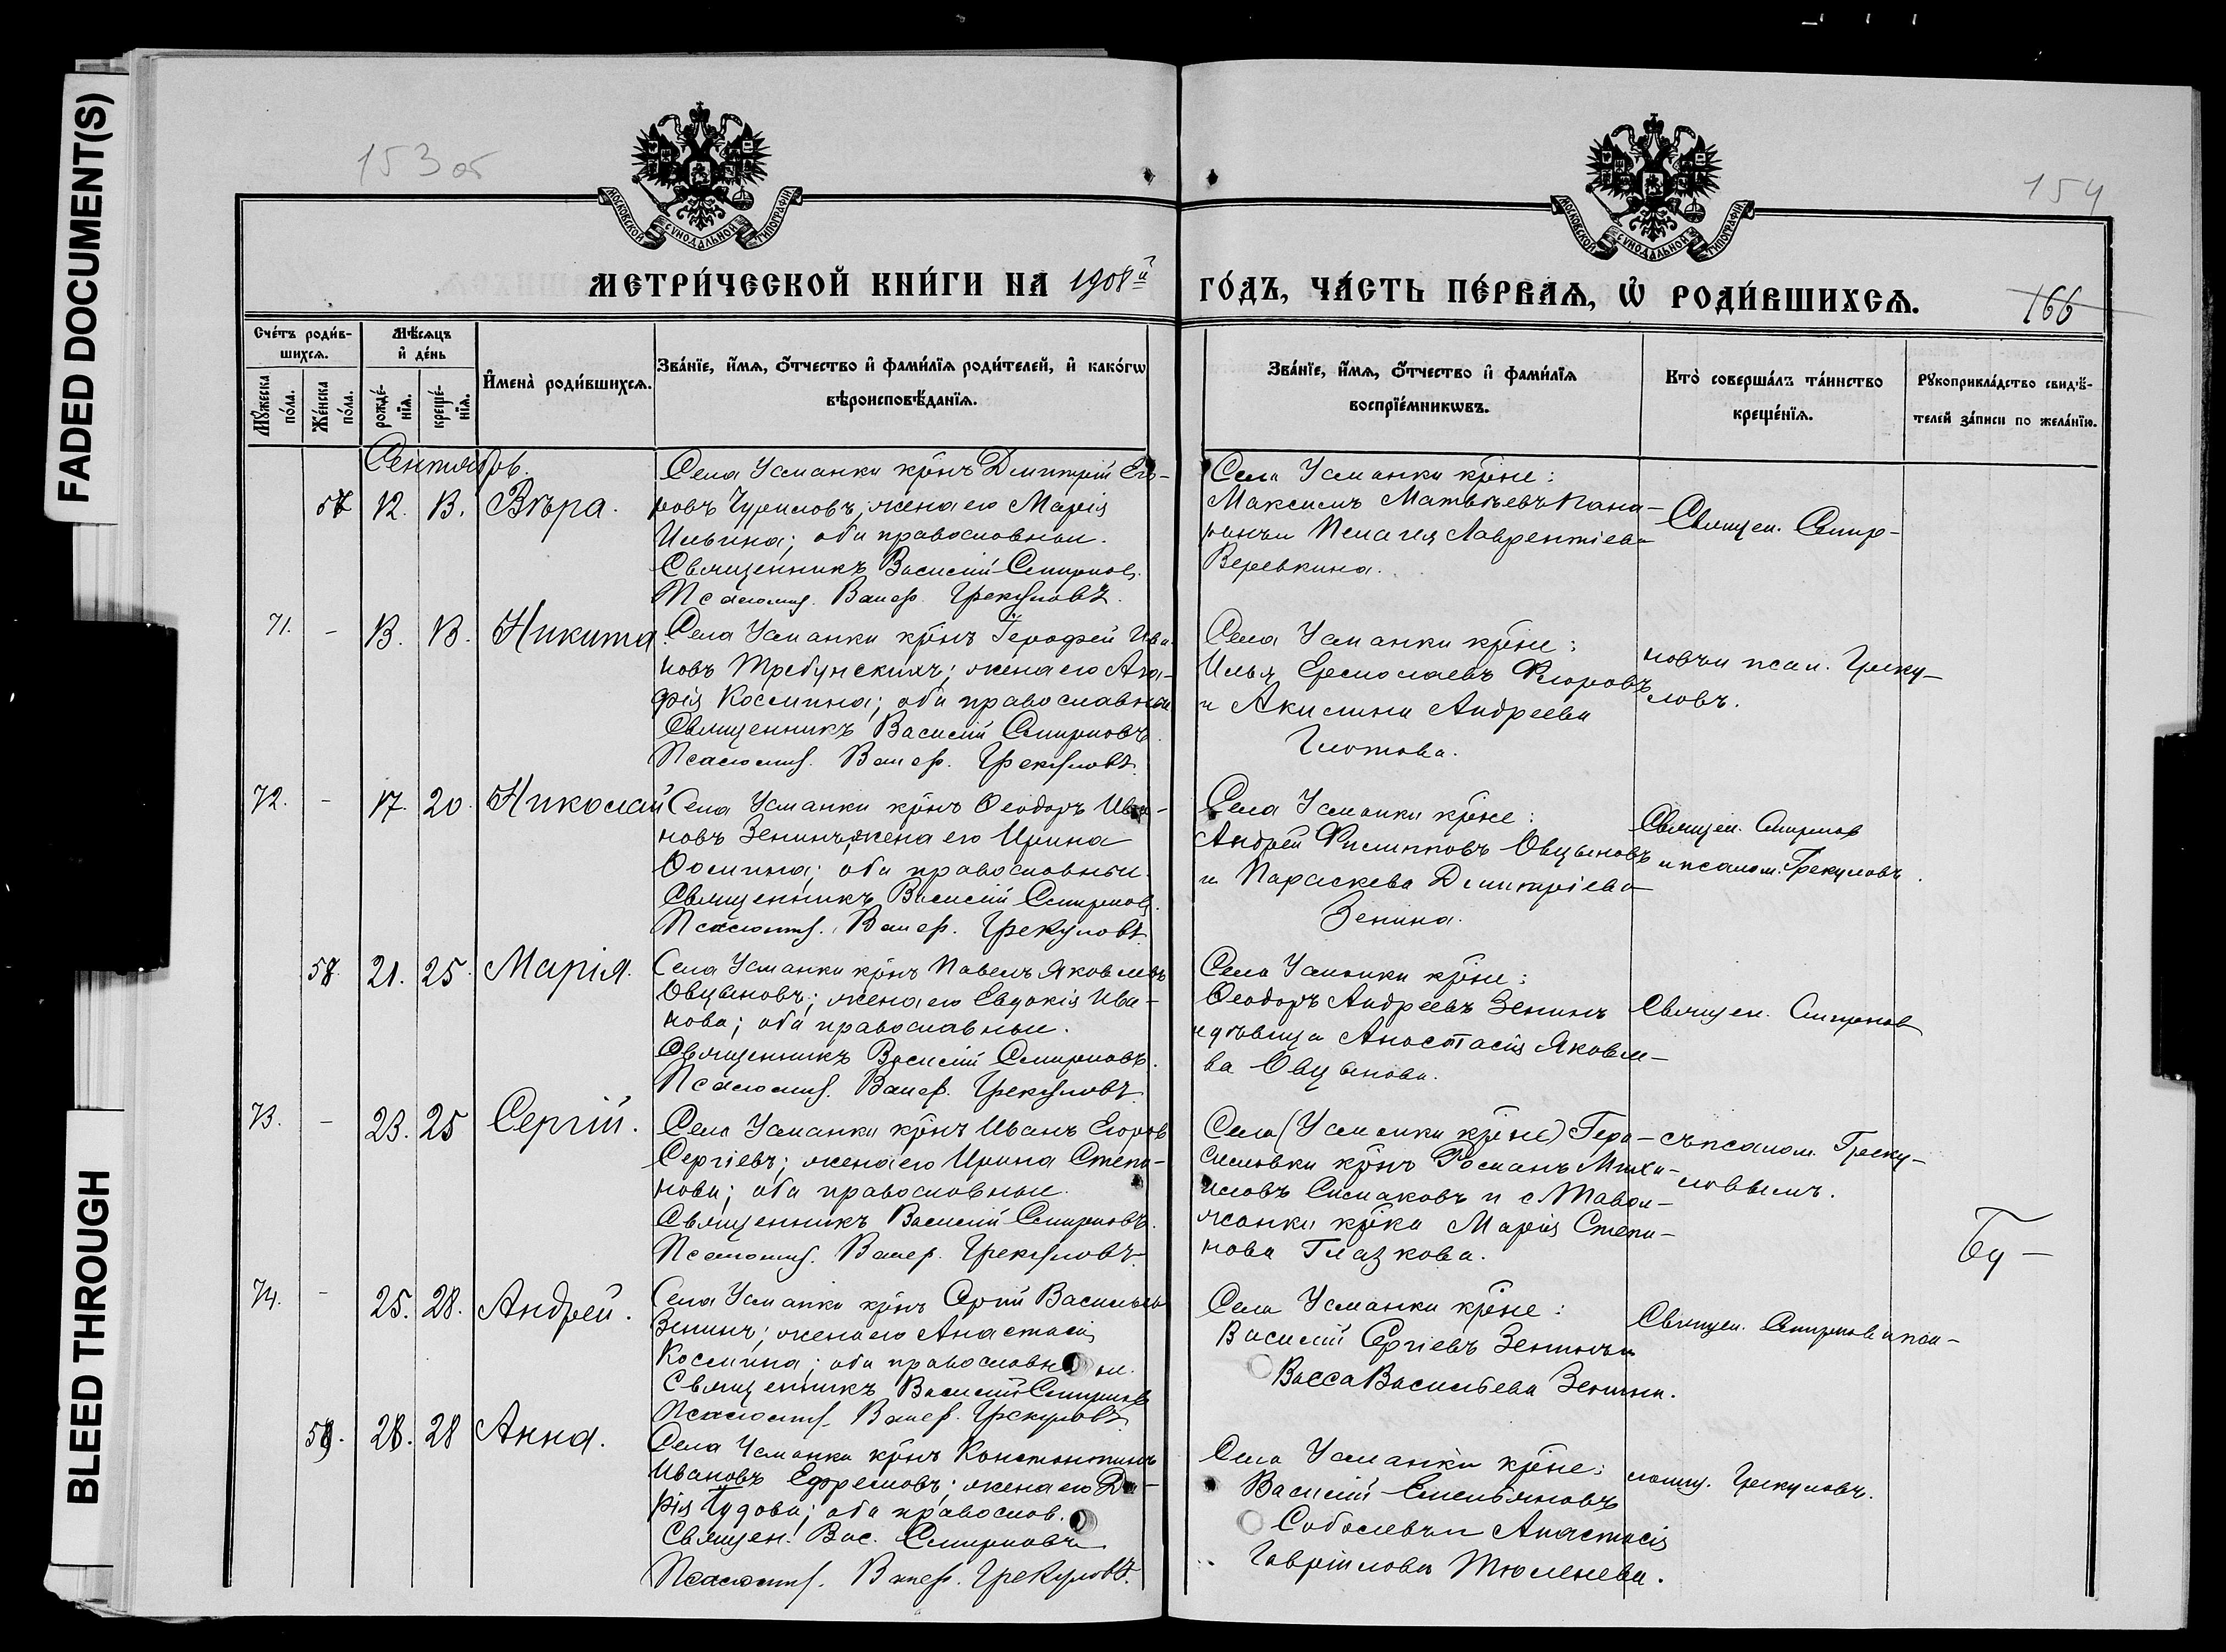 FADED DOCUMENT(S)
BLEED THROUGH
153 об
154
166
МОСКОВСКОЙ СѴНОДАЛЬНОЙ ТИПОГРАФІИ
МОСКОВСКОЙ СѴНОДАЛЬНОЙ ТИПОГРАФІИ
МЕТРИ́ЧЕСКОЙ КНИ́ГИ НА 1908й ГО́ДЪ, ЧА́СТЬ ПЕ́РВАѦ, Ѡ҆ РОДИ́ВШИХСѦ.
Сче́тъ роди́в-
шихсѧ.
Мѹ́жеска
по́ла.
Же́нска
по́ла.
Мѣ́сѧцъ
и҆ де́нь
рожде́-
нїѧ.
креще́-
нїѧ.
И҆мена̀ роди́вшихсѧ.
Зва́нїе, и҆́мѧ, ѻ҆́тчество и҆ фами́лїѧ роди́телей, и҆ како́гѡ
вѣроисповѣ́данїѧ.
Зва́нїе, и҆́мѧ, ѻ҆́тчество и҆ фами́лїѧ
воспрїе́мникѡвъ.
Кто̀ соверша́лъ та́инство
креще́нїѧ.
Рѹкоприкла́дство свидѣ́-
телей за́писи по жела́нїю.
Сентябрь.
57 12. 13. Вѣра.
Села Усманки крнъ Дмитрій Его-
ровъ Чуриловъ; жена его Марія
Ильина; оба православные.
Священникъ Василій Смирновъ.
Псаломщ. Валер. Грекуловъ.
Села Усманки крне:
Максимъ Матвѣевъ
и Пелагія Лаврентіева
Веревкина.
Священ. Смир-
71. - 13. 13. Никита.
Села Усманки крнъ Іерофей Ива-
новъ Требунскихъ; жена его Ага-
фія Космина; оба православные
Священникъ Василій Смирновъ.
Псаломщ. Валер. Грекуловъ.
Села Усманки крне:
Илья Ермолаевъ Фроловъ
и Акилина Андреева
Глотова.
новъ и псал. Греку-
ловъ.
72. - 17. 20. Николай
Села Усманки крнъ Ѳеодоръ Ива-
новъ Зенинъ; жена его Ирина
Ѳомина; оба православные.
Священникъ Василій Смирновъ.
Псаломщ. Валер. Грекуловъ.
Села Усманки крне:
Андрей Филипповъ Овцыновъ
и Параскева Дмитріева
Зенина.
Священ. Смирнов
и псалом. Грекуловъ.
58. 21. 25. Марія.
Села Усманки крнъ Павелъ Яковлевъ
Овцыновъ; жена его Евдокія Ива-
нова; оба православные.
Священникъ Василій Смирновъ.
Псаломщ. Валер. Грекуловъ.
Села Усманки крне:
Ѳеодоръ Андреевъ Зенинъ
и дѣвица Анастасія Яковле-
ва Овцынова.
Священ. Смирнов
73. - 23. 25 Сергій.
Села Усманки крнъ Иванъ Егоров
Сергіевъ; жена его Ирина Степа-
нова; оба православные.
Священникъ Василій Смирновъ.
Псаломщ. Валер. Грекуловъ.
Села (Усманки крне) Гера-
симовки крнъ Романъ Миха-
иловъ Симаковъ и с. Тавол-
жанки крка Марія Степа-
нова Глазкова.
съ псалом. Греку-
ловымъ.
74. - 25. 28. Андрей.
Села Усманки крнъ Сергій Васильевъ
Зенинъ; жена его Анастасія
Космина; оба православные.
Священникъ Василій Смирновъ
Псаломщ. Валер. Грекуловъ.
Села Усманки крне:
Василій Сергіевъ Зенинъ и
Васса Васильева Зенина.
Священ. Смирнов и пса-
59. 28. 28 Анна.
Села Усманки крнъ Константинъ
Ивановъ Ефремовъ; жена его Да-
рія Іудова; оба правосл.
Священ. Вас. Смирновъ
Псаломщ. Валер. Грекуловъ.
Села Усманки крне:
Василій Емельяновъ
Соболевъ и Анастасія
Гавріилова Тюленева.
ломщ. Грекуловъ.